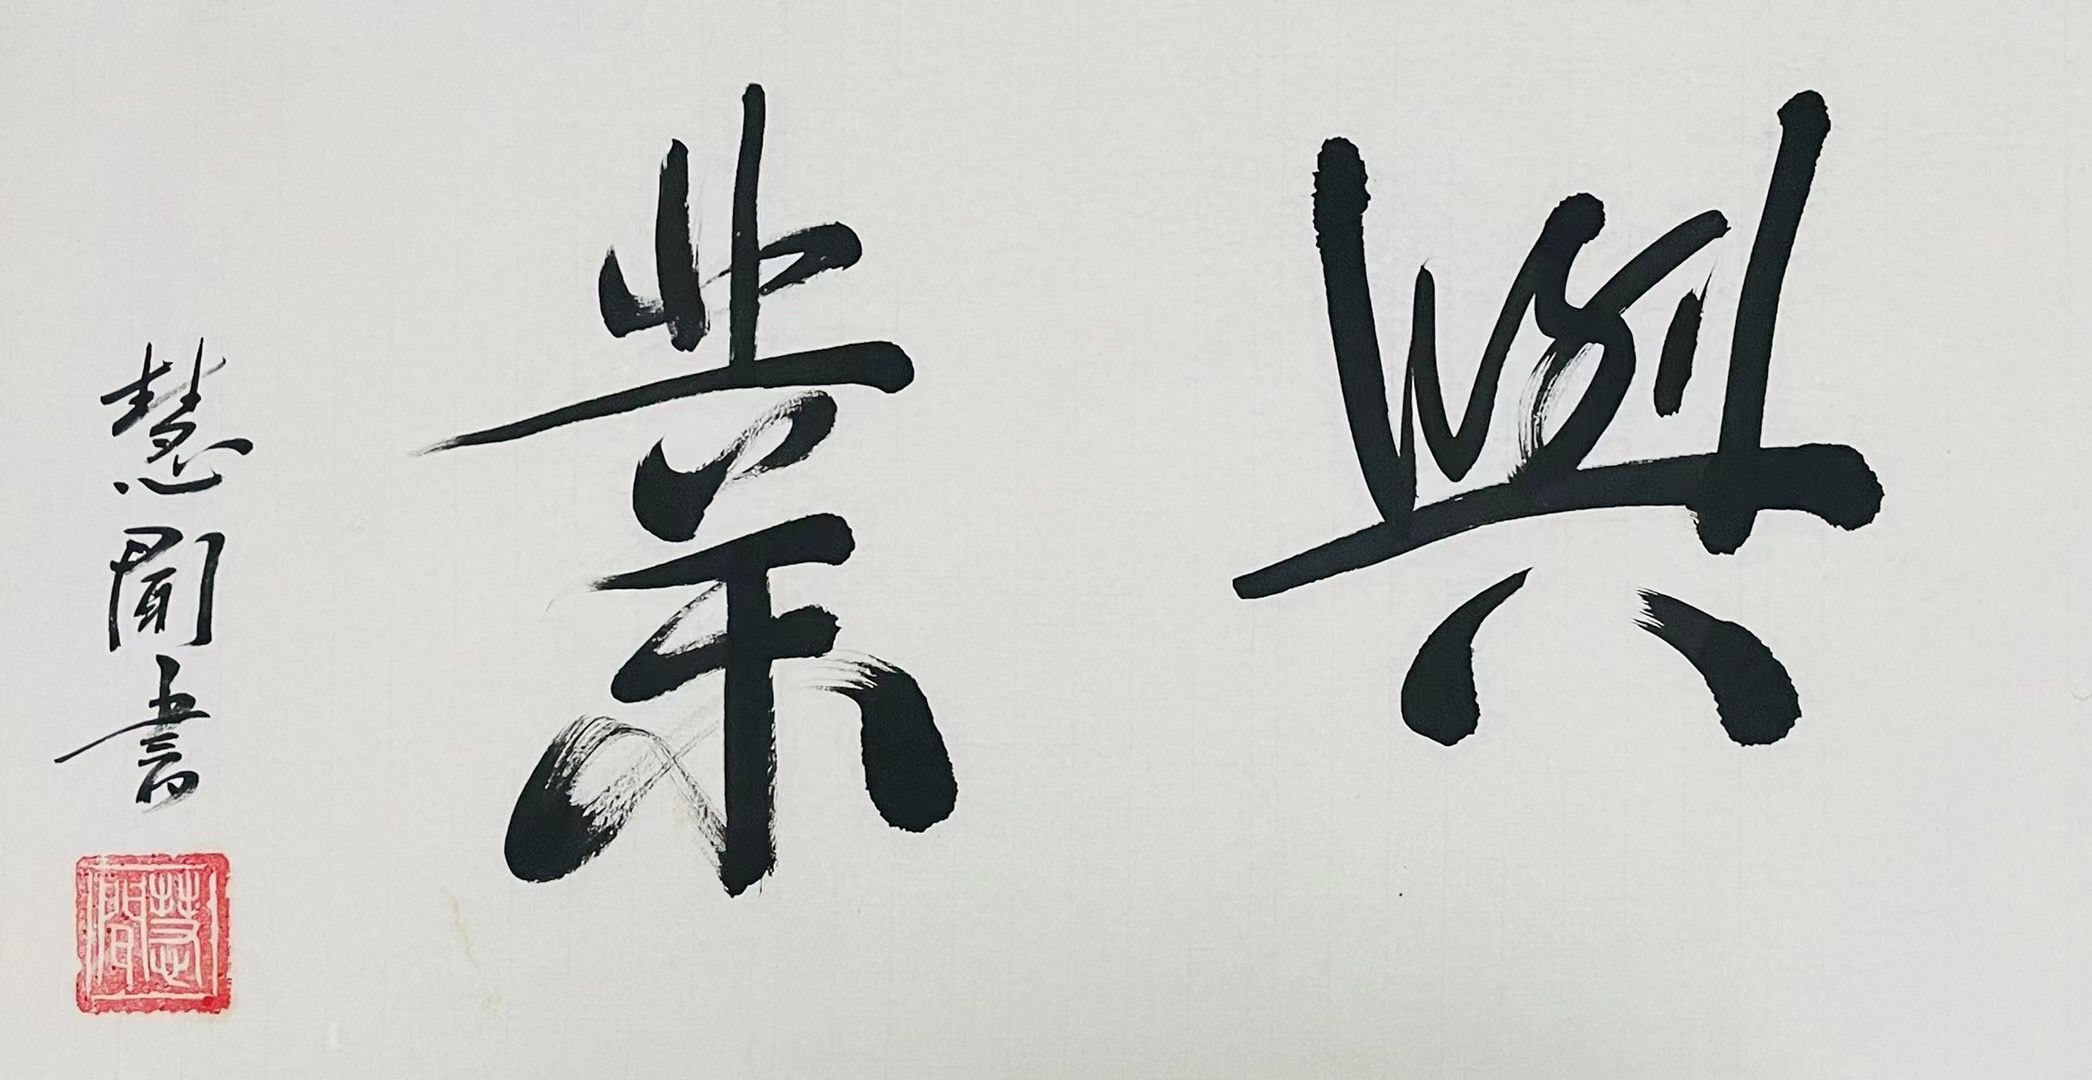 興業
慧聞書
慧聞